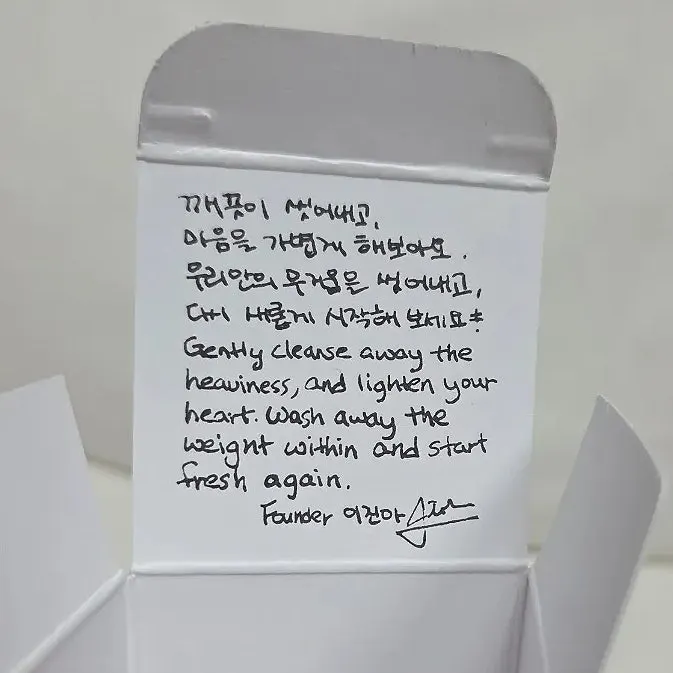 깨끗이 씻어내고,
마음을 가볍게 해보아요.
우리안의 무거움을 씻어내고,
다시 새롭게 시작해 보세요
Gently cleanse away the
heaviness, and lighten your
heart. Wash away the
weight within and start
fresh again.
Founder 이진아